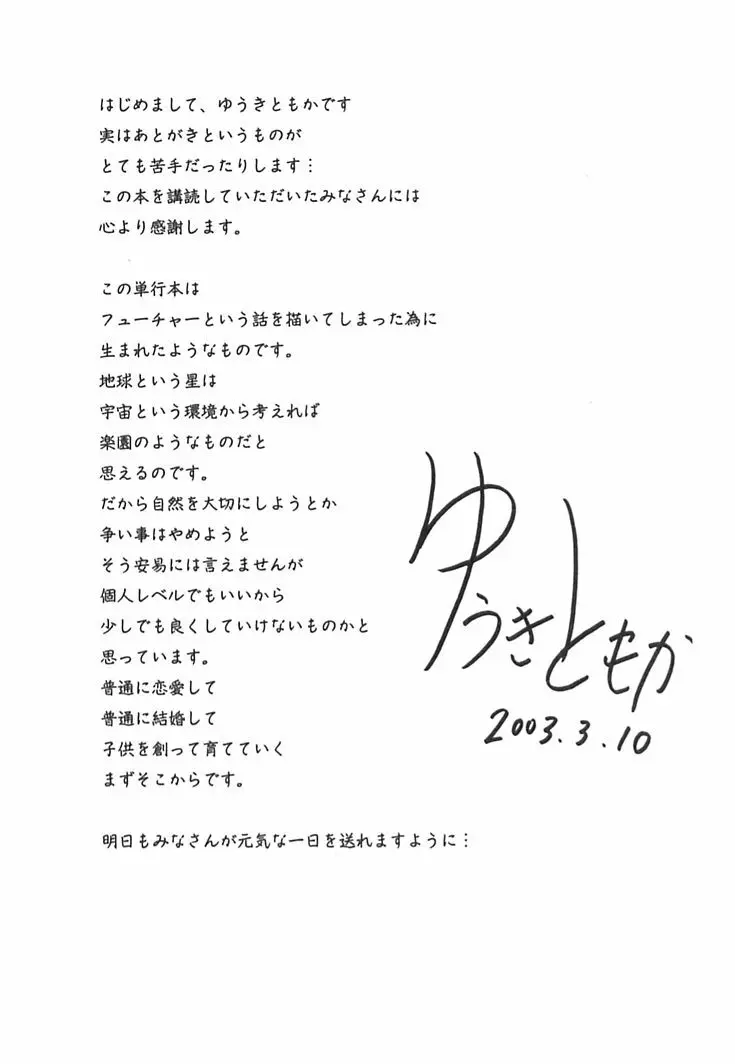 はじめまして、ゆうきともかです
実はあとがきというものが
とても苦手だったりします…
この本を講読していただいたみなさんには
心より感謝します。
この単行本は
フューチャーという話を描いてしまった為に
生まれたようなものです。
地球という星は
宇宙という環境から考えれば
楽園のようなものだと
思えるのです。
だから自然を大切にしようとか
争い事はやめようと
そう安易には言えませんが
個人レベルでもいいから
少しでも良くしていけないものかと
思っています。
普通に恋愛して
普通に結婚して
子供を創って育てていく
まずそこからです。
明日もみなさんが元気な一日を送れますように…
ゆうきともか
2003.3.10